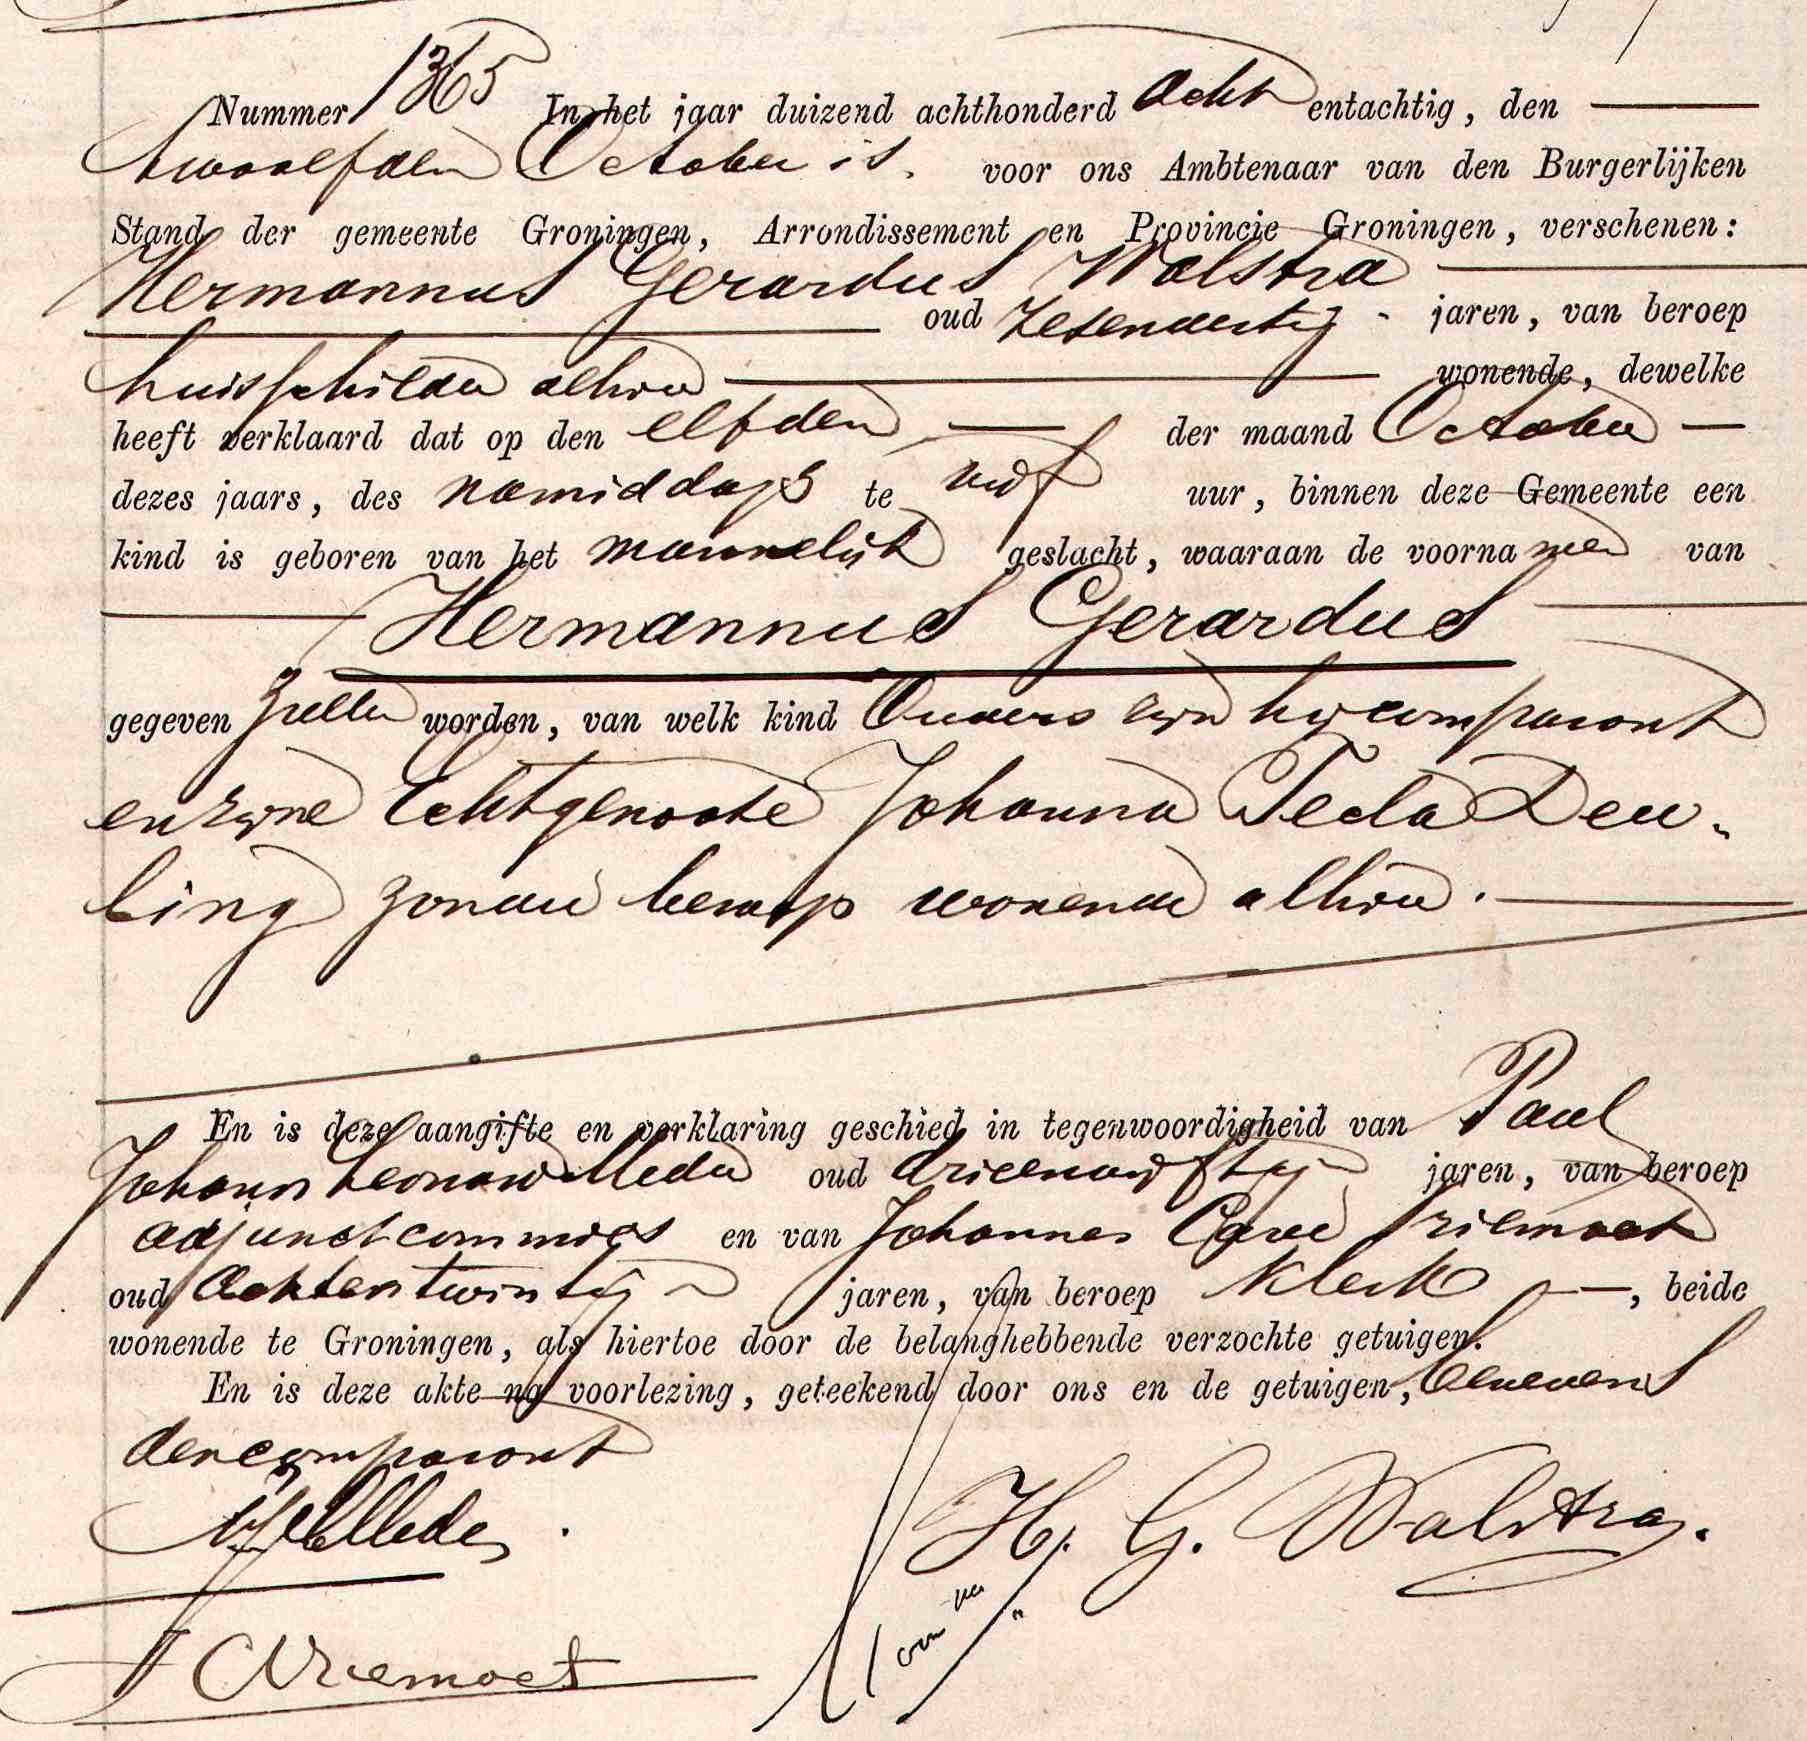 Nummer 1365 In het jaar duizend achthonderd acht entachtig, den
twaalfden October is. voor ons Ambtenaar van den Burgerlijken
Stand der gemeente Groningen, Arrondissement en Provincie Groningen, verschenen:
Hermannus Gerardus Walstra
oud zesendertig jaren, van beroep
huisschilder alhier wonende, dewelke
heeft verklaard dat op den elfden der maand October
dezes jaars, des namiddags te vijf uur, binnen deze Gemeente een
kind is geboren van het mannelijk geslacht, waaraan de voornamen van
Hermannus Gerardus
gegeven zullen worden, van welk kind Ouders zijn hij comparant
en zijne Echtgenoote Johanna Tecla Deu-
ling zonder beroep wonende alhier.
En is deze aangifte en verklaring geschied in tegenwoordigheid van Paul
Johann Leonard Meder oud drieenvijftig jaren, van beroep
adjunct commies en van Johannes Carel Vriemoet
oud achtentwintig jaren, van beroep klerk, beide
wonende te Groningen, als hiertoe door de belanghebbende verzochte getuigen.
En is deze akte na voorlezing, geteekend door ons en de getuigen, benevens
den comparant
H. G. Walstra.
J C Vriemoet